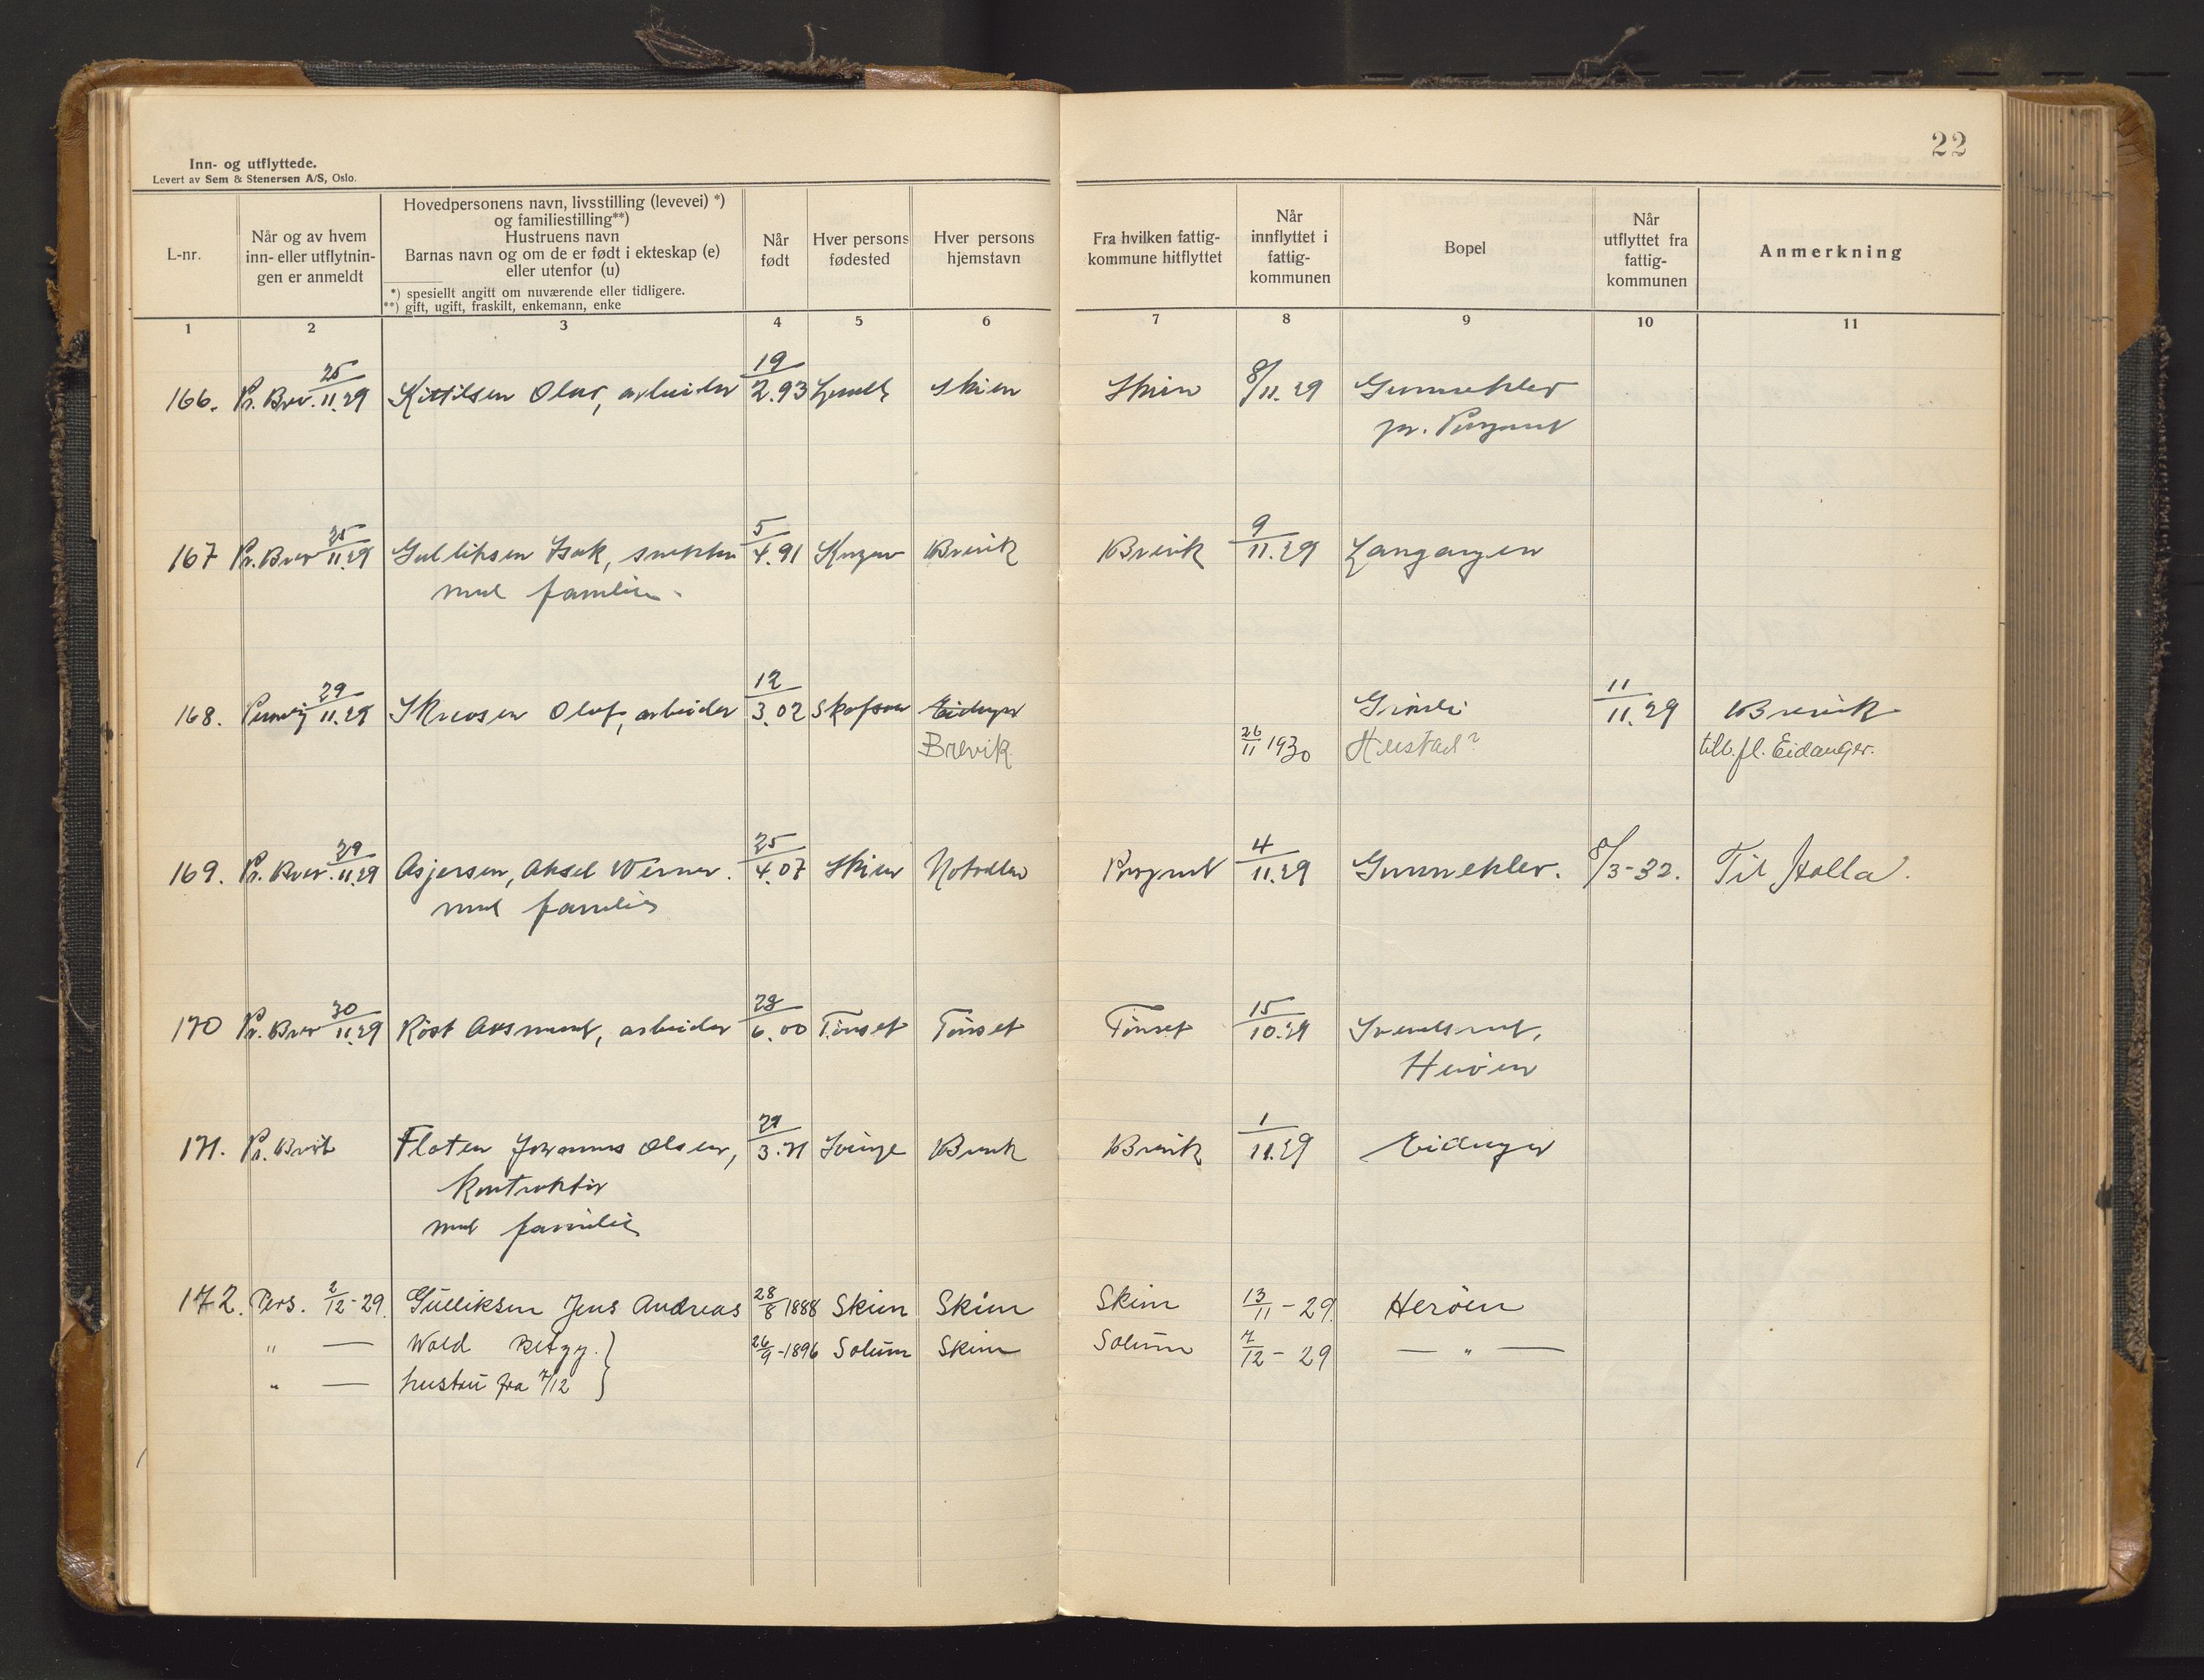 22
Inn- og utflyttede.
Levert av Sem & Stenersen A/S, Oslo.
L-nr.
Når og av hvem
inn- eller utflytnin-
gen er anmeldt
Hovedpersonens navn, livsstilling (levevei) *)
og familiestilling**)
Hustruens navn
Barnas navn og om de er født i ekteskap (e)
eller utenfor (u)
*) spesiellt angitt om nuværende eller tidligere.
**) gift, ugift, fraskilt, enkemann, enke
Når
født
Hver persons
fødested
Hver persons
hjemstavn
Fra hvilken fattig-
kommune hitflyttet
Når
innflyttet i
fattig-
kommunen
Bopel
Når
utflyttet fra
fattig-
kommunen
Anmerkning
1 2 3 4 5 6 7 8 9 10 11
166. Pr. Brev. 25/11.29 Kittilsen Olav, arbeider 19/2.93 Skien Skien 8/11.29 Gunneklev
pr. Porsgrund
167 Pr. Brev 25/11.29 Gulliksen Isak, snekker 5/4.91 Brevik Brevik 9/11.29 Langangen
med familie
168. 29/11.29 Olaf, arbeider 12/3.02 Skotfoss Eidanger Grinli 11/11.29 Brevik
Brevik 26/11 1930 tilb. fl. Eidanger.
169. Pr. Brev. 29/11.29 Asjersen, Aksel Werner. 25/4.07 Skien Notodden Porsgrund 4/11.29 Gunneklev. 8/3-32. Til Holla.
med familie
170 Pr. Brev 30/11.29 Røst Aasmund, arbeider 28/6.00 Tönset Tönset Tönset 15/10.29
Heröen
171. Pr. Brev Floten Johannes Olsen, 3.71 Brevik Brevik 1/11.29 Eidanger
Kontraktør
med familie
172. Pers. 2/12-29. Gulliksen Jens Andreas 28/8 1888 Skien Skien Skien 13/11-29. Heröen
" — Wold Betzy. } 26/9-1896 Solum Skien Solum 7/12-29 — " —
" — hustru fra 7/12